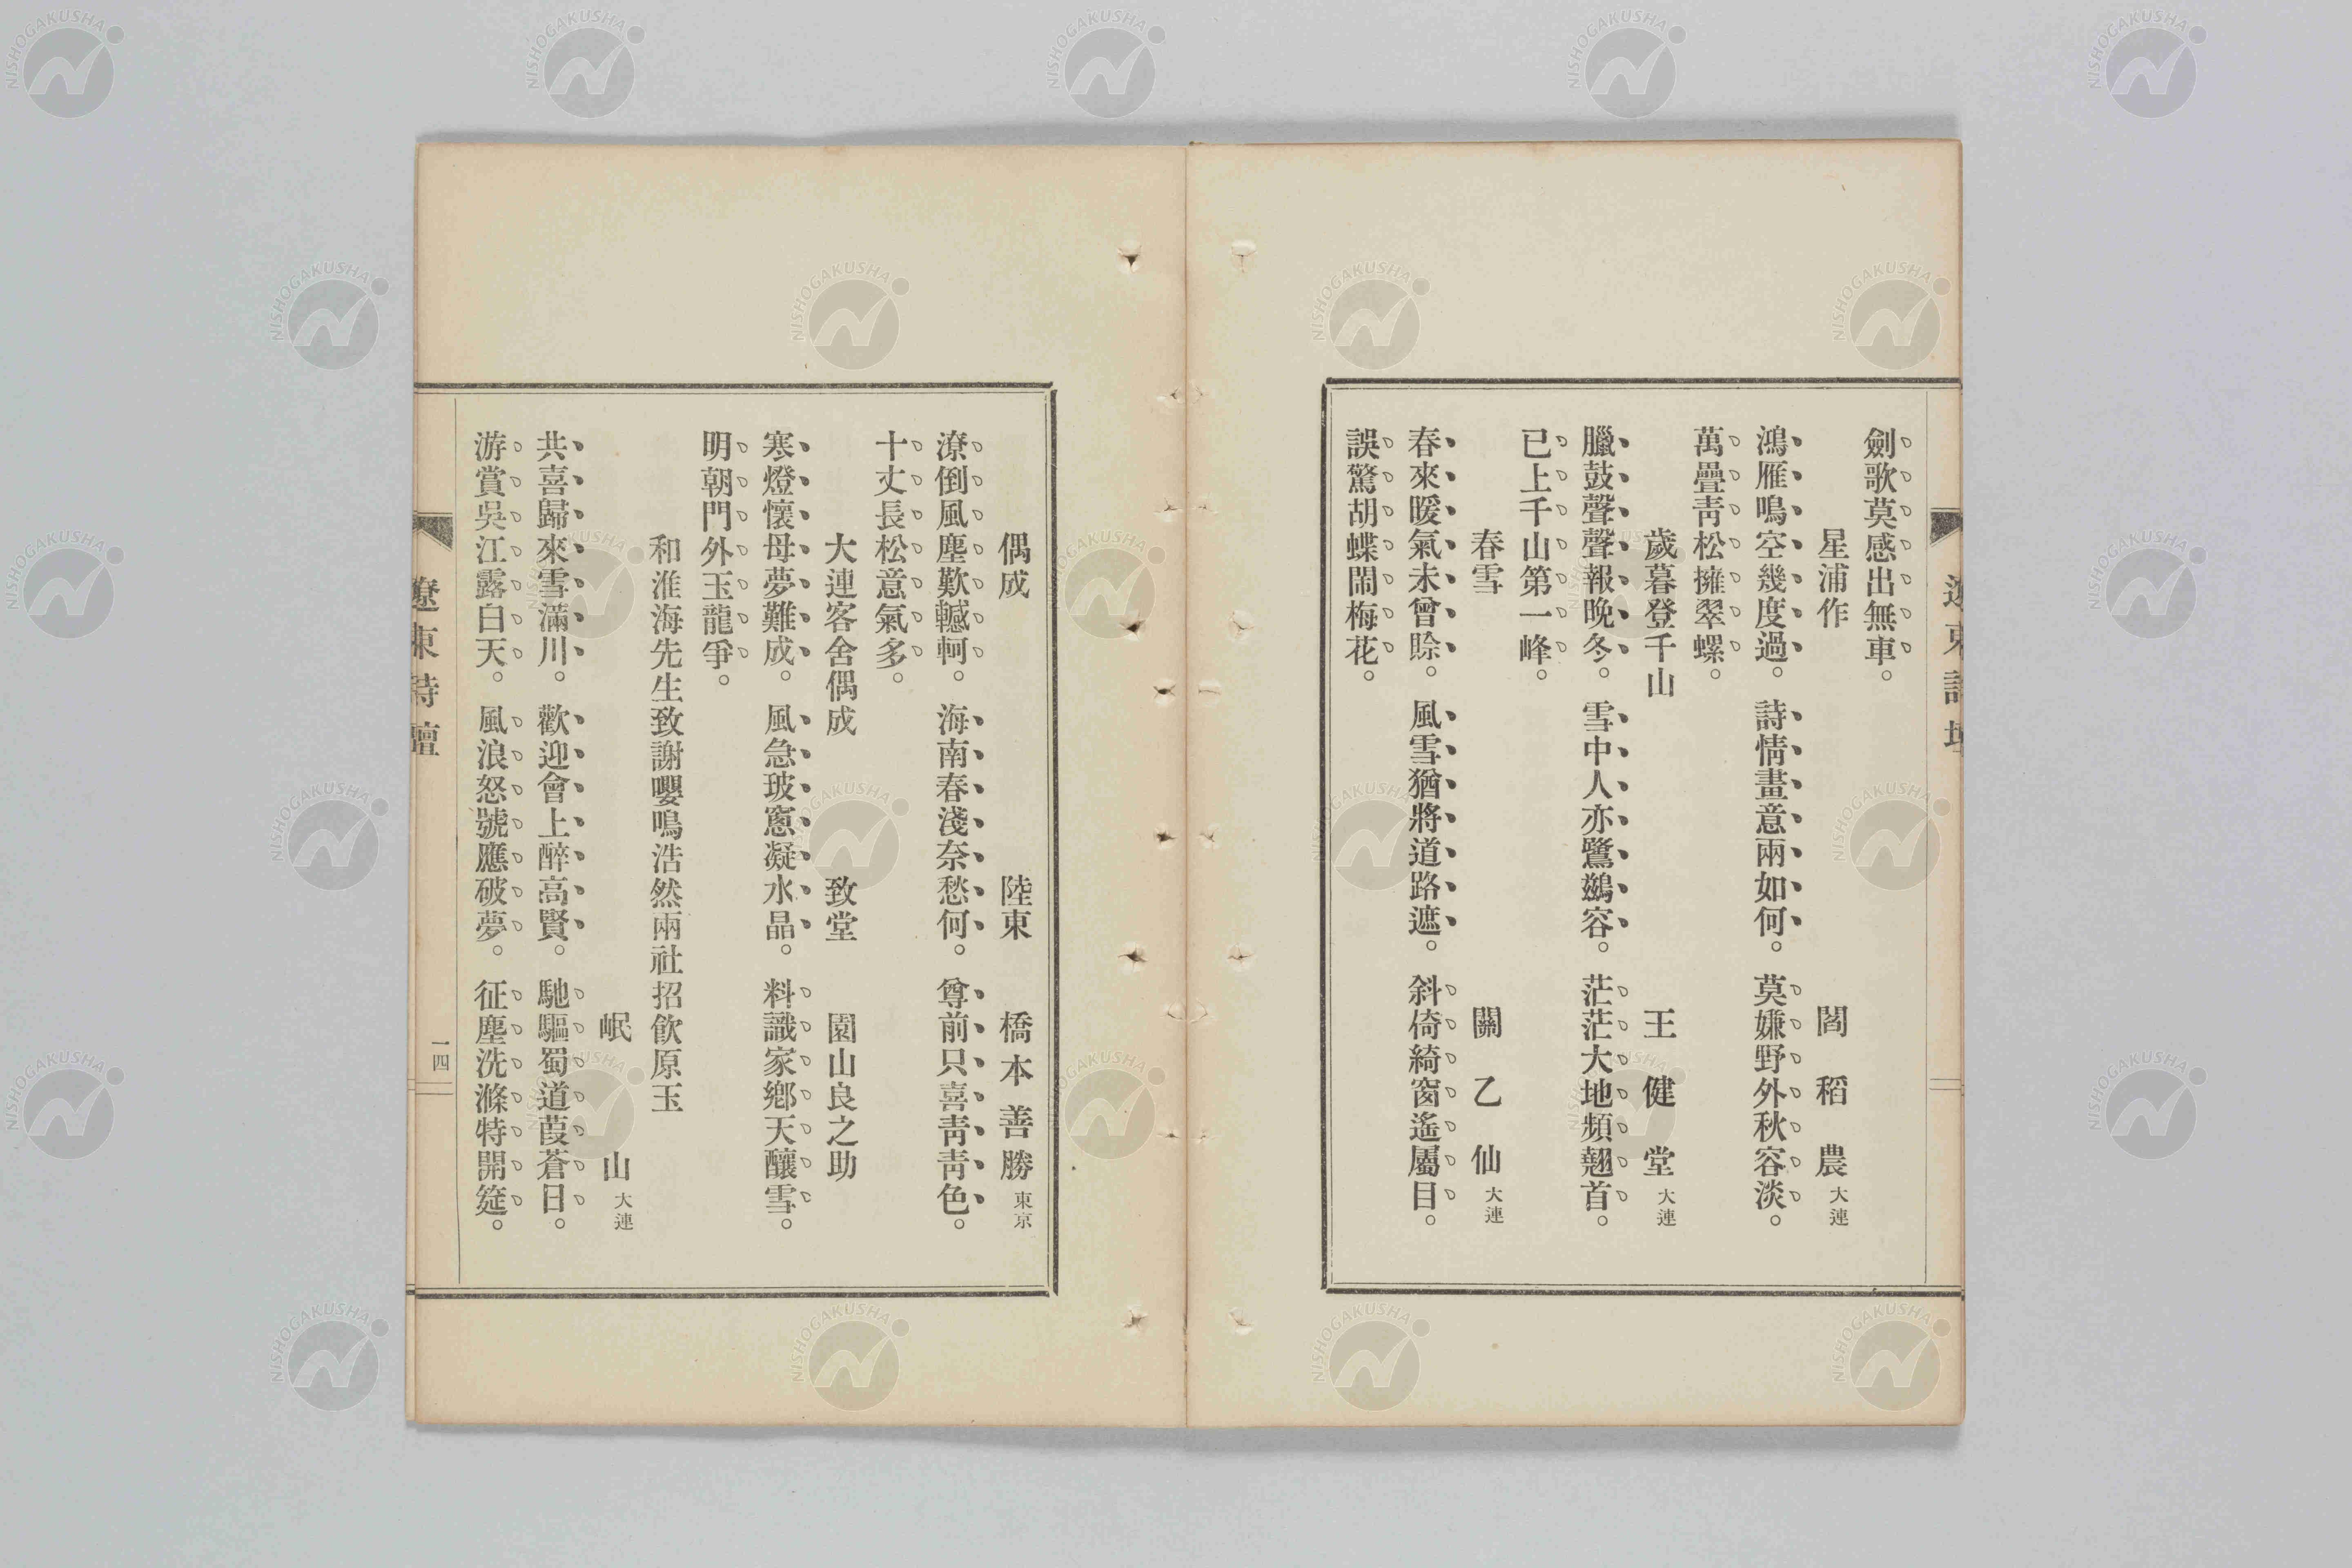 劍歌莫感出無車。
星浦作 閻稻農 大連
鴻雁鳴空幾度過。詩情畫意兩如何。莫嫌野外秋容淡。
萬疊靑松擁翠螺。
歲暮登千山 王健堂 大連
臘鼓聲聲報晩冬。雪中人亦鷺鷀容。茫茫大地頻翹首。
已上千山第一峰。
春雪 關乙仙 大連
春來暖氣未曾賒。風雪猶將道路遮。斜倚綺窗遙屬目。
誤驚胡蝶鬧梅花。
偶成 陸東 橋本善勝 東京
潦倒風塵歎轗軻。海南春淺奈愁何。尊前只喜靑靑色。
十丈長松意氣多。
大連客舍偶成 致堂 園山良之助
寒燈懷母夢難成。風急玻窻凝水晶。料識家鄕天釀雪。
明朝門外玉龍爭。
和淮海先生致謝嚶鳴浩然兩社招飮原玉
岷山 大連
共喜歸來雪滿川。歡迎會上醉高賢。馳驅蜀道葭蒼日。
游賞吳江露白天。風浪怒號應破夢。征塵洗滌特開筵。
遼東詩壇
一四
NISHOGAKUSHA